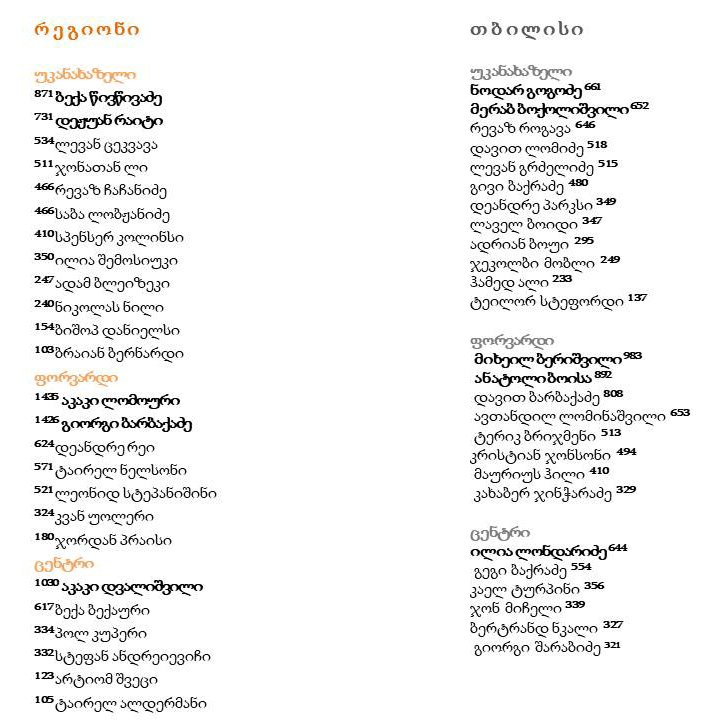 რეგიონი
უკანახაზელი
871 ბექა წივწივაძე
731 დეჟუან რაიტი
534 ლევან ცეკვავა
511 ჯონათან ლი
466 რევაზ ჩაჩანიძე
466 საბა ლობჟანიძე
410 სპენსერ კოლინსი
350 ილია შემოსიუკი
247 ადამ ბლეიზეკი
240 ნიკოლას ნილი
154 ბიშოპ დანიელსი
103 ბრაიან ბერნარდი
ფორვარდი
1435 აკაკი ლომოური
1426 გიორგი ბარბაქაძე
624 დეანდრე რეი
571 ტაირელ ნელსონი
521 ლეონიდ სტეპანიშინი
324 კვან უოლერი
180 ჯორდან პრაისი
ცენტრი
1030 აკაკი დვალიშვილი
617 ბექა ბექაური
334 პოლ კუპერი
332 სტეფან ანდრეიევიჩი
123 არტიომ შვეცი
105 ტაირელ ალდერმანი
თბილისი
უკანახაზელი
ნოდარ გოგოძე 661
მერაბ ბოქოლიშვილი 652
რევაზ როგავა 646
დავით ლომიძე 518
ლევან გრძელიძე 515
გივი ბაქრაძე 480
დეანდრე პარკსი 349
ლაველ ბოიდი 347
ადრიან ბოუი 295
ჯეკოლბი მობლი 249
ჰამედ ალი 233
ტეილორ სტეფორდი 137
ფორვარდი
მიხეილ ბერიშვილი 983
ანატოლი ბოისა 892
დავით ბარბაქაძე 808
ავთანდილ ლომინაშვილი 653
ტერიკ ბრიჯმენი 513
კრისტიან ჯონსონი 494
მაურიუს ჰილი 410
კახაბერ ჯინჭარაძე 329
ცენტრი
ილია ლონდარიძე 644
გეგი ბაქრაძე 554
კაელ ტურპინი 356
ჯონ მიჩელი 339
ბერტრანდ ნკალი 327
გიორგი შარაბიძე 321